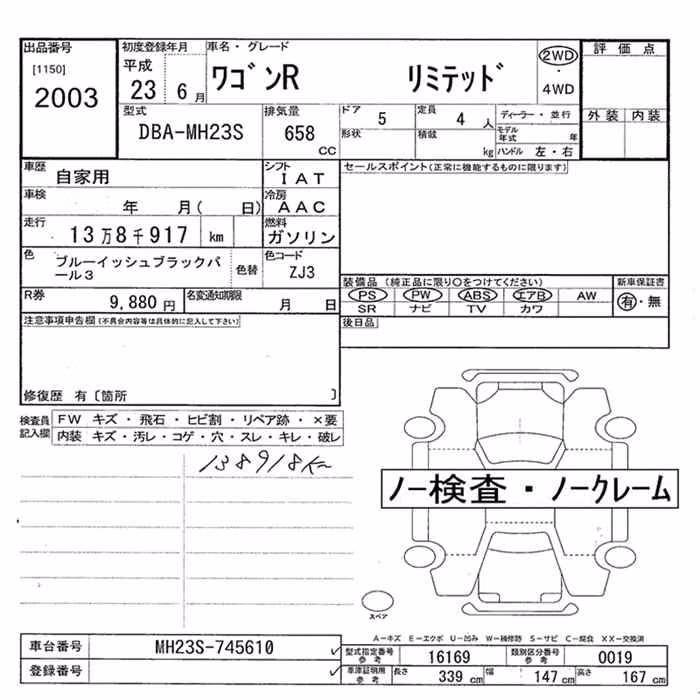 出品番号 初度登録年月 車名・グレード 評価点
[1150] 平成 ワゴンR リミテッド 2WD
2003 23 6月 ・
4WD
型式 排気量 ドア 5 定員 4人 ディーラー・並行 外装 内装
DBA-MH23S 658 形状 積載 モデル年式 年
CC kg ハンドル 左・右
車歴 自家用 シフト IAT セールスポイント(正常に機能するものに限ります)
車検 年 月( 日) 冷房 AAC
走行 13万8千917 km 燃料 ガソリン
色 ブルーイッシュブラックパ 色替 色コード
ール3 ZJ3 装備品 (純正品に限り○をつけてください) 新車保証書
R券 9,880円 名変通知期限 月 日 PS PW ABS エアB AW 有・無
SR ナビ TV カワ
注意事項申告欄(不具合内容等は具体的に記入して下さい) 後日品
修復歴 有〔箇所 〕
検査員 FW キズ・飛石・ヒビ割・リペア跡・×要
記入欄 内装 キズ・汚レ・コゲ・穴・スレ・キレ・破レ
138918K
ノー検査・ノークレーム
スペア
A−キズ E−エクボ U−凹み W−補修跡 S−サビ C−腐食 XX−交換済
車台番号 MH23S-745610 型式指定番号 参考 16169 類別区分番号 参考 0019
登録番号 車庫証明用 参考 長さ 339cm 幅 147cm 高さ 167cm